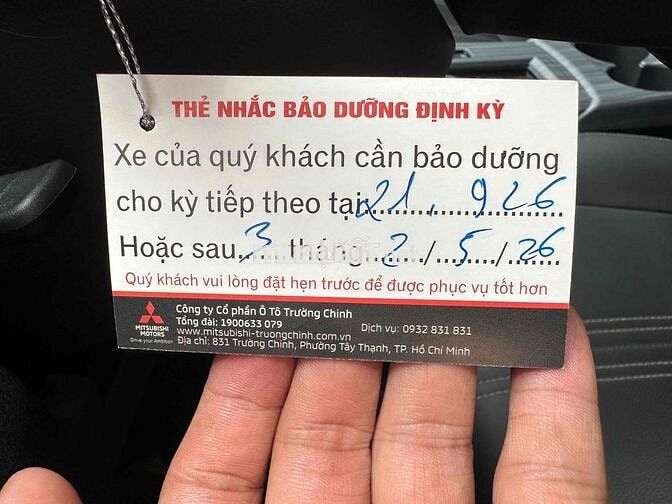 THẺ NHẮC BẢO DƯỠNG ĐỊNH KỲ
Xe của quý khách cần bảo dưỡng
cho kỳ tiếp theo tại: 21.926
Hoặc sau 3 tháng 2/5/26
Quý khách vui lòng đặt hẹn trước để được phục vụ tốt hơn
MITSUBISHI
MOTORS
Drive your Ambition
Công ty Cổ phần Ô Tô Trường Chinh
Tổng đài: 1900633 079
Dịch vụ: 0932 831 831
www.mitsubishi-truongchinh.com.vn
Địa chỉ: 831 Trường Chinh, Phường Tây Thạnh, TP. Hồ Chí Minh